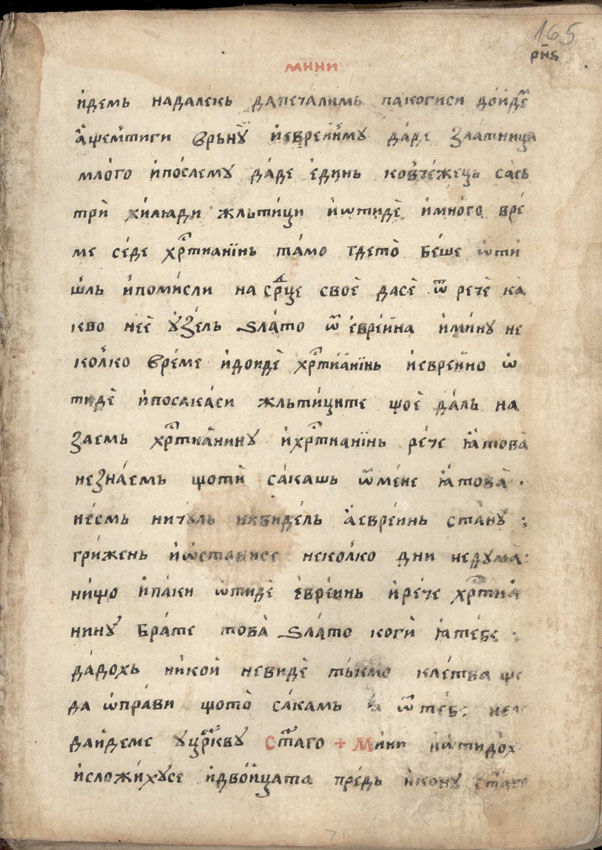 165
рн҃ѕ
мини
и҆демь надалекь дапечалимь пакогиси до́йдⷨе
а҆фемⷮтиги врьнꙋ̀ и҆евреи́нмꙋ да́де злѧтница
млого и҆послемꙋ да́де е҆динь ковчежець сась
три̇̀ хи́люади жльтици и҆ѡтидѐ и҆много вре́
ме се́де хрⷭ҇тианїинь та́мо гдето̀ бе́ше ѡ҆ти
шль и҆помисли на срⷣце своѐ дасѐ ѿ рече ка
кво нее̇̀ ꙋ҆зель ѕла́то ѿ е҆врейна и҆минꙋ не
ко́лко вре́ме и҆доидѐ хрⷭ҇тиа҆нїинь и҆еврейно ѡ҆
тидѐ и҆посакаси жльтиците що́е даль на
заемь хрⷭ҇тиа҆нинꙋ и҆хрⷭ҇тианїинь рече ꙗ҆това
незна́емь щоти̇̀ сака́шь ѿ ме́не ꙗ҆това̀ ·
не́смь ничꙋль нивидель а҆евреинь стапꙋ :
гри́жень и҆ѡ҆ста́висе неко́лко дни недꙋма̀
ни́що и҆паки ѡ҆тидѐ е҆вреинь и҆рече хрⷭ҇тиа
нинꙋ̀ бра́те това̀ ѕла́то коги̇̀ ꙗ҆тебе :
да́дохь нико́й невидѐ тькмо кле́тва ще
да ѡ҆пра́ви щото̀ сакамь ѿ теб:
да́йдеме ꙋцр҃квꙋ ст҃аго + мини и҆ѡтидох
и҆сложи́хꙋсе и҆двои́цата предь и҆конꙋ ст҃аго